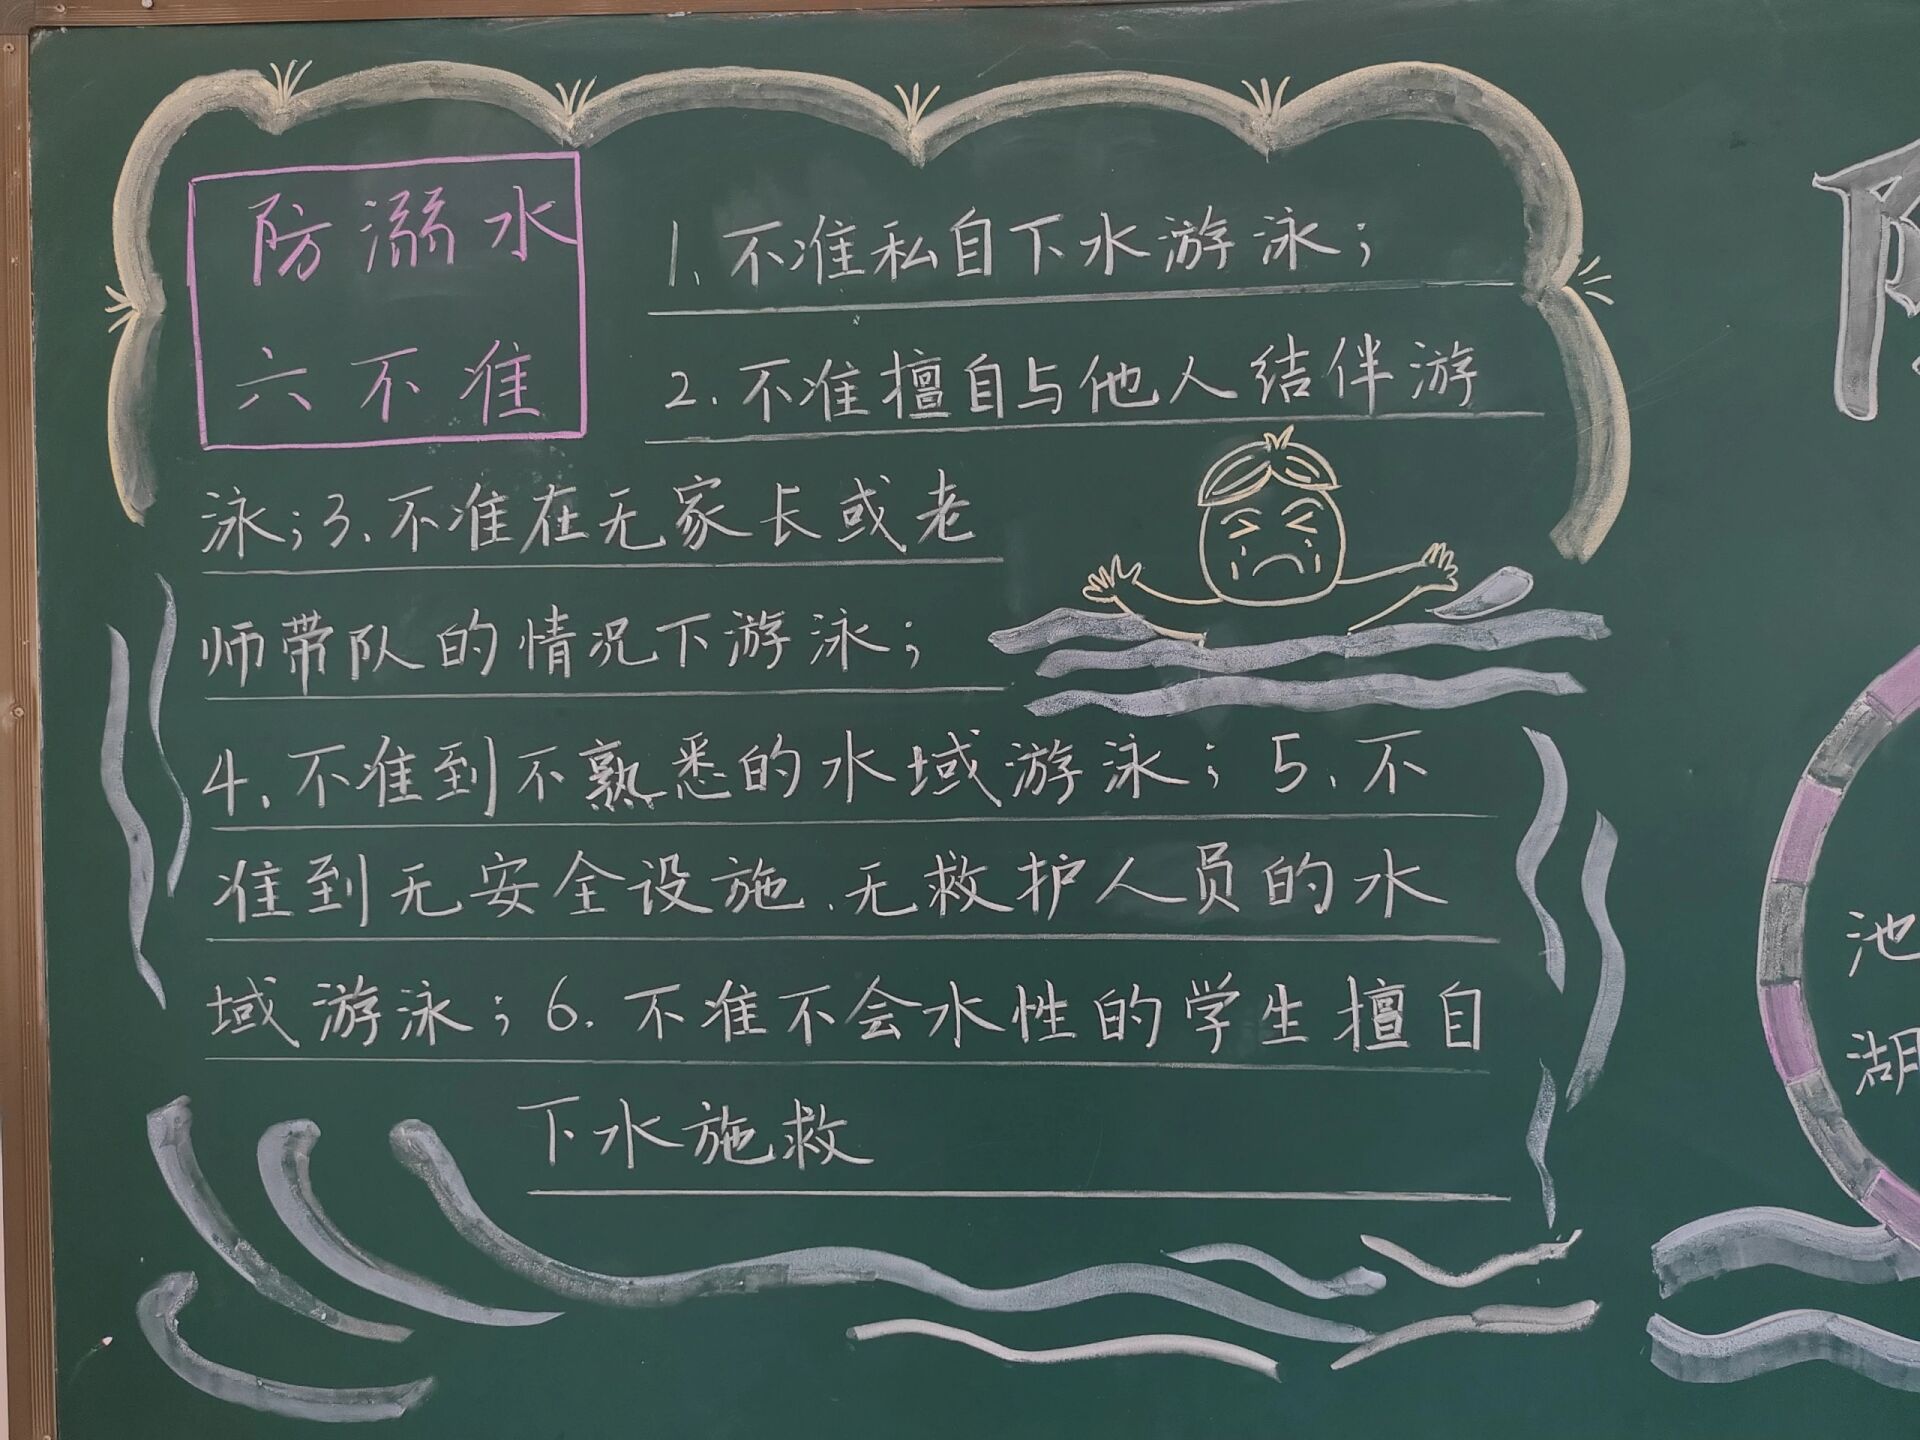 防溺水
六不准
1、不准私自下水游泳；
2.不准擅自与他人结伴游
泳；3、不准在无家长或老
师带队的情况下游泳；
4、不准到不熟悉的水域游泳；5、不
准到无安全设施、无救护人员的水
域游泳；6.不准不会水性的学生擅自
下水施救
池
湖